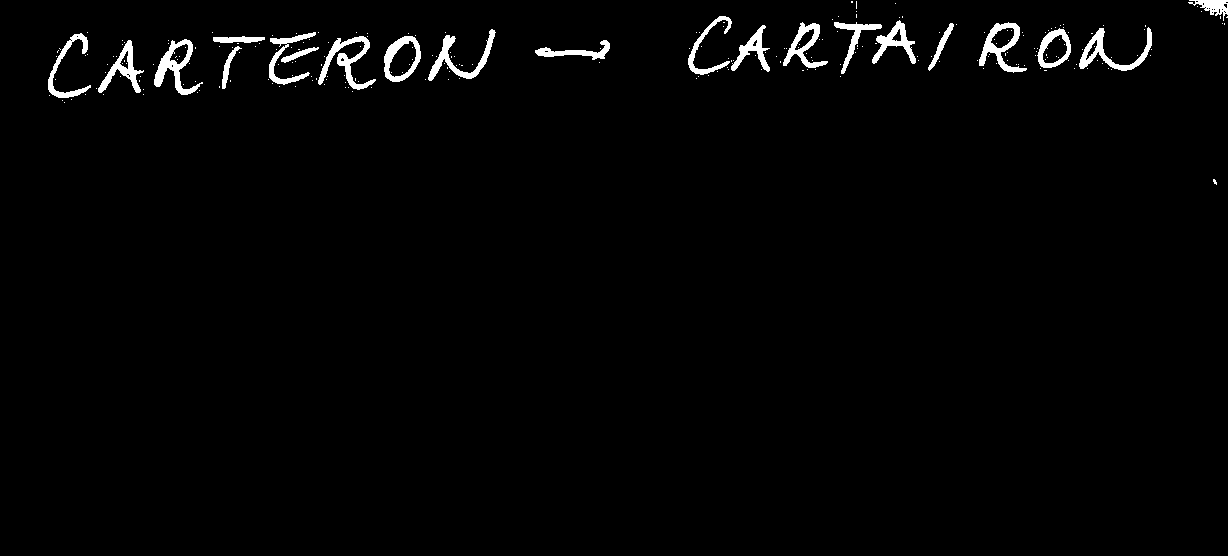 CARTERON — CARTAIRON